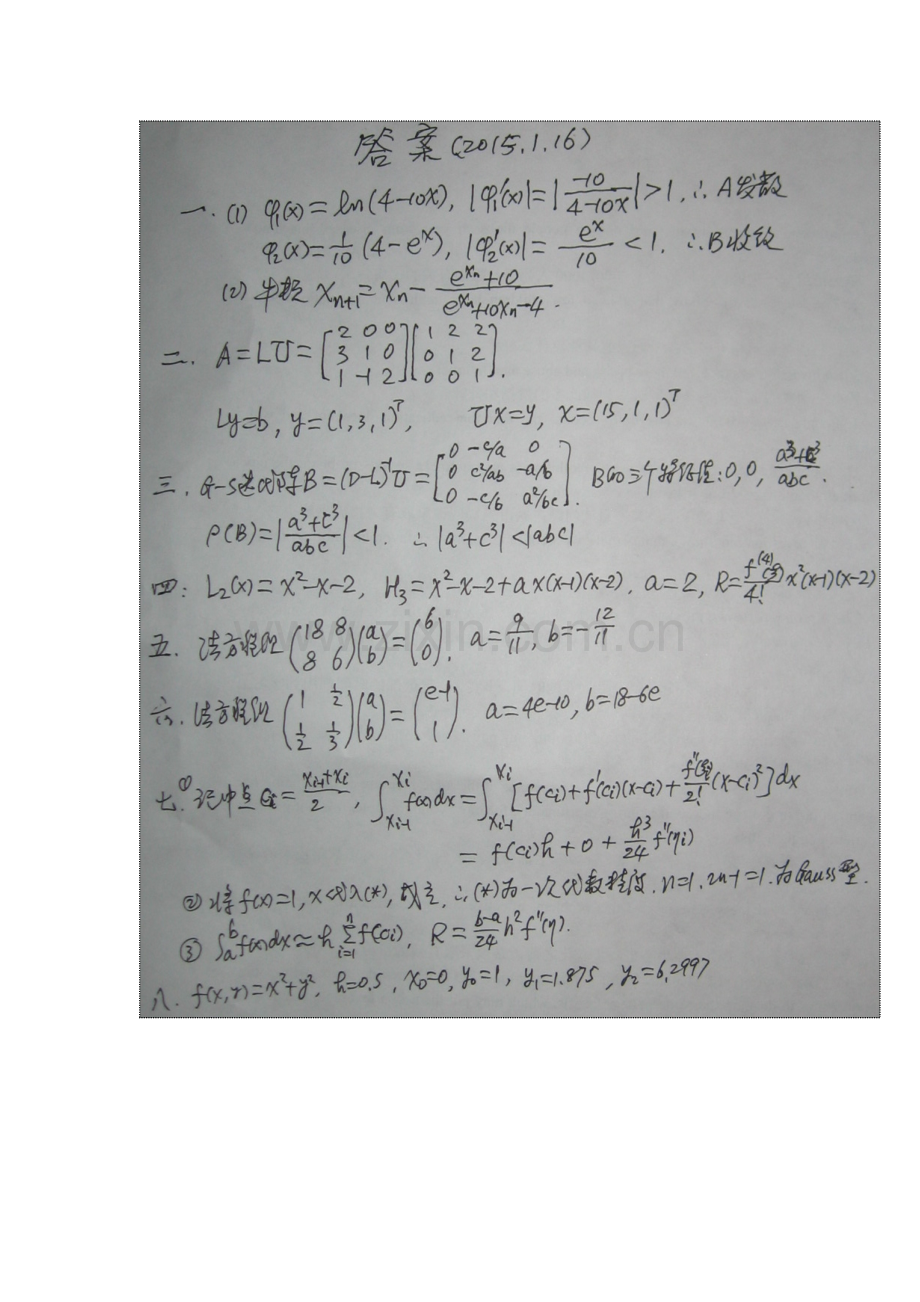 答案(2015.1.16)
一.(1) φ₁(x)=ln(4-10x), |φ₁'(x)|=|-10/(4-10x)|>1, ∴A发散
φ₂(x)=1/10(4-eˣ), |φ₂'(x)|=eˣ/10<1. ∴B收敛
(2) 牛顿 xₙ₊₁=xₙ-(e^xₙ+10)/(e^xₙ+10xₙ-4).
二. A=LU=[2 0 0; 3 1 0; 1 -1 2][1 2 2; 0 1 2; 0 0 1].
Ly=b, y=(1,3,1)ᵀ, Ux=y, x=(15,1,1)ᵀ
三. G-S迭代阵B=(D-L)⁻¹U=[0 -c/a 0; 0 c²/ab -a/b; 0 -c/b a²/bc]. B的三个特征值:0,0,(a³+c³)/abc.
ρ(B)=|(a³+c³)/abc|<1. ∴|a³+c³|<|abc|
四: L₂(x)=x²-x-2, H₃=x²-x-2+ax(x-1)(x-2), a=2, R=f⁽⁴⁾(ξ)/4! x²(x-1)(x-2)
五. 法方程组(18 8; 8 6)(a; b)=(6; 0), a=9/11, b=-12/11
www.zixin.com.cn
六. 法方程组(1 1/2; 1/2 1/3)(a; b)=(e-1; 1). a=4e-10, b=18-6e
七.① 记中点cᵢ=(xᵢ₋₁+xᵢ)/2, ∫_{xᵢ₋₁}^{xᵢ} f(x)dx=∫_{xᵢ₋₁}^{xᵢ}[f(cᵢ)+f'(cᵢ)(x-cᵢ)+f''(ξᵢ)/2!(x-cᵢ)²]dx
=f(cᵢ)h+0+h³/24 f''(ηᵢ)
② 将f(x)=1, x代入(*), 成立, ∴(*)为一次代数精度. n=1, 2n-1=1. 为Gauss型.
③ ∫ₐᵇf(x)dx≈h∑ᵢ₌₁ⁿf(cᵢ), R=(b-a)/24 h²f''(η).
八. f(x,y)=x²+y², h=0.5, x₀=0, y₀=1, y₁=1.875, y₂=6.2997